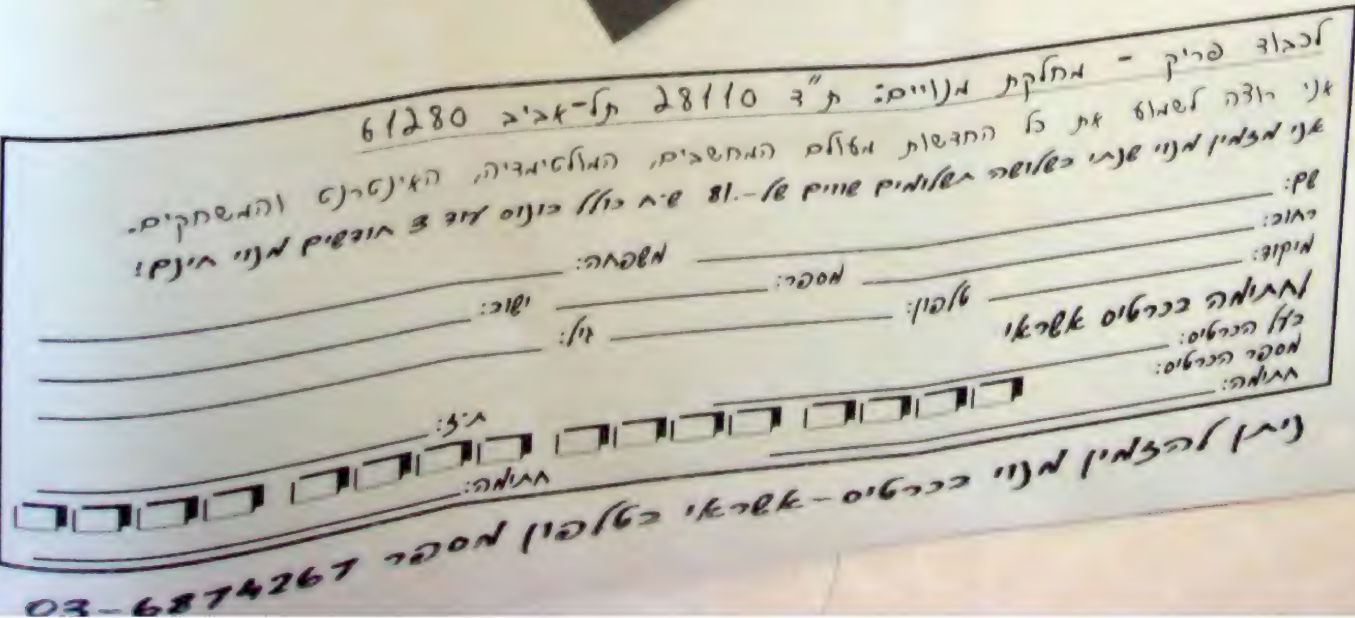 לכבוד פריק - מחלקת מנויים: ת"ד 28110 תל-אביב 61280
אני רוצה לשמוע את כל החדשות מעולם המחשבים, המולטימדיה, האינטרנט והמשחקים.
אני מזמין מנוי שנתי בשלושה תשלומים שווים של-.81 ש"ח כולל בונוס עוד 3 חודשים מנוי חינם!
שם: משפחה:
רחוב: מספר: ישוב:
מיקוד: טלפון: גיל:
לחתימה בכרטיס אשראי
בעל הכרטיס: ת.ז:
מספר הכרטיס:
חתימה: חתימה:
ניתן להזמין מנוי בכרטיס-אשראי בטלפון מספר 03-6874267